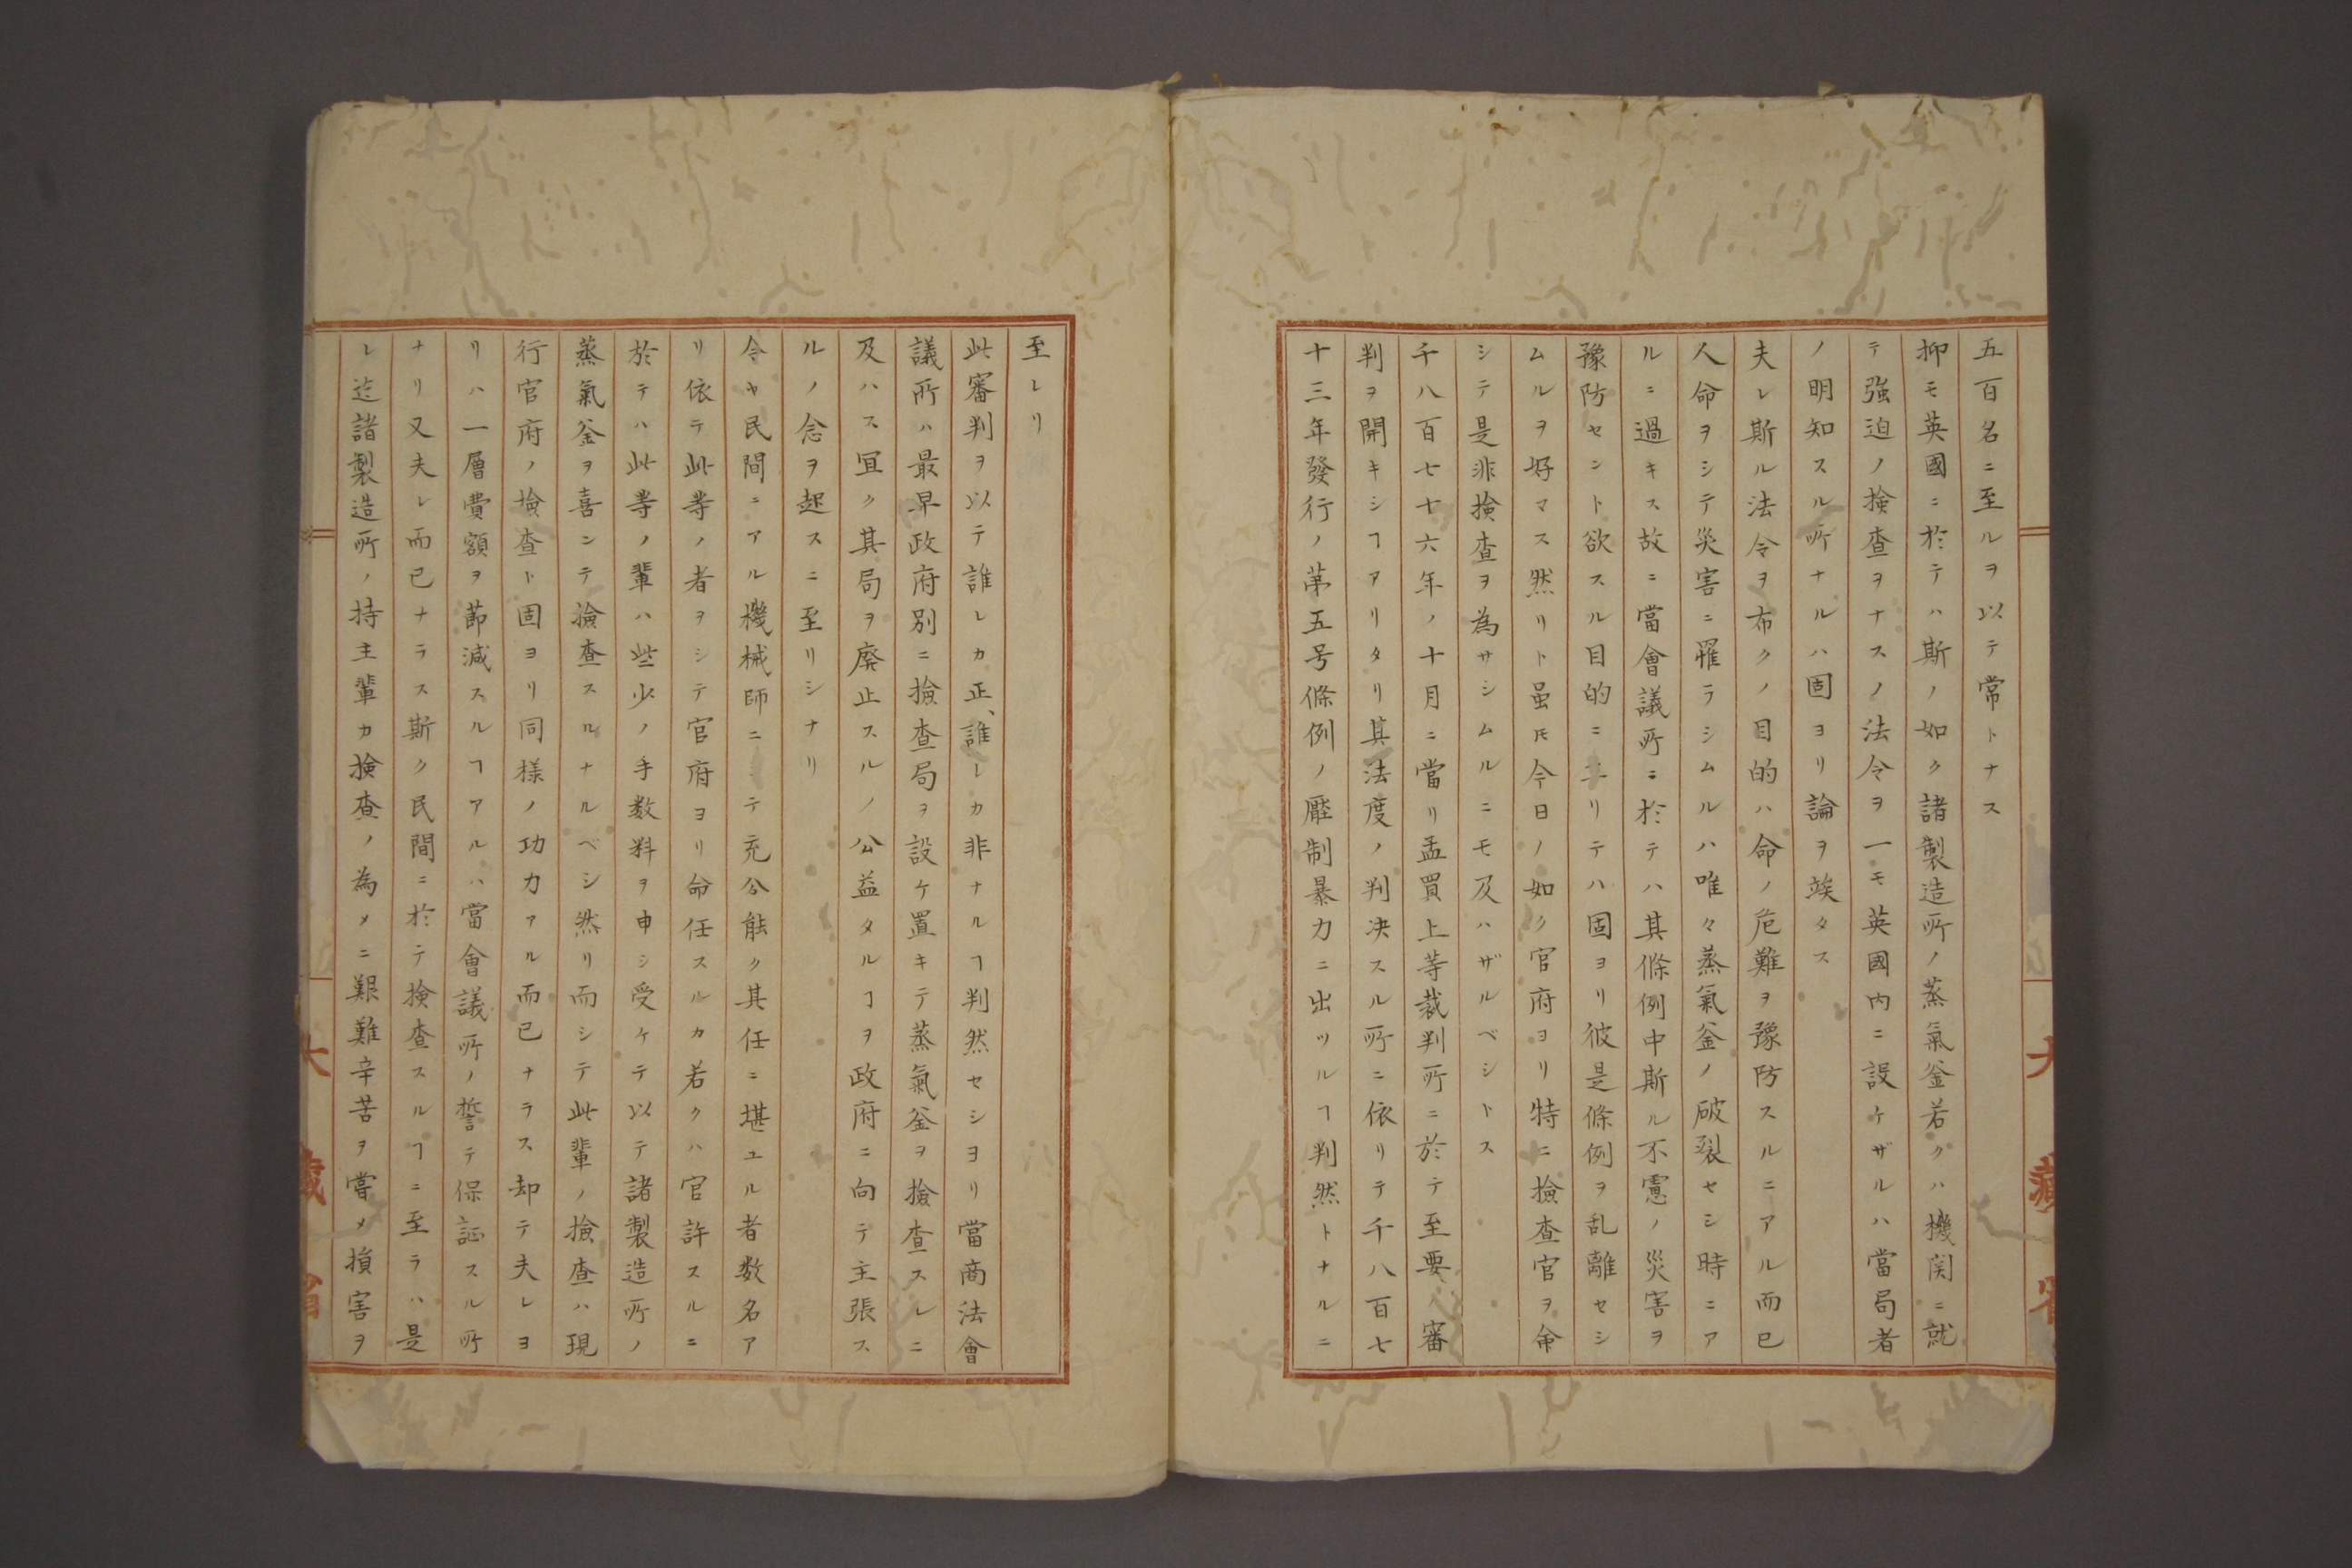 五百名ニ至ルヲ以テ常トナス
抑モ英國ニ於テハ斯ノ如ク諸製造所ノ蒸氣釜若クハ機関ニ就
テ強迫ノ検査ヲナスノ法令ヲ一モ英國内ニ設ケザルハ當局者
ノ明知スル所ナルハ固ヨリ論ヲ竢タス
夫レ斯ル法令ヲ布クノ目的ハ命ノ危難ヲ豫防スルニアル而已
人命ヲシテ災害ニ罹ラシムルハ唯々蒸氣釜ノ破裂セシ時ニア
ルニ過キス故ニ當會議所ニ於テハ其條例中斯ル不慮ノ災害ヲ
豫防セント欲スル目的ニ至リテハ固ヨリ彼是條例ヲ乱離セシ
ムルヲ好マス然リト虽𪜈今日ノ如ク官府ヨリ特ニ撿査官ヲ命
シテ是非検査ヲ為サシムルニモ及ハザルベシトス
千八百七十六年ノ十月ニ當リ孟買上等裁判所ニ於テ至要審
判ヲ開キシヿアリタリ其法度ノ判决スル所ニ依リテ千八百七
十三年發行ノ苐五号條例ノ壓制暴力ニ出ツルヿ判然トナルニ
至レリ
此審判ヲ以テ誰レカ正、誰レカ非ナルヿ判然セシヨリ當商法會
議所ハ最早政府別ニ撿查局ヲ設ケ置キテ蒸氣釜ヲ撿查スルニ
及ハス宜ク其局ヲ廃止スルノ公益タルヿヲ政府ニ向テ主張ス
ルノ念ヲ起スニ至リシナリ
今ヤ民間ニアル機械師ニシテ充公能ク其任ニ堪ユル者数名ア
リ依テ此等ノ者ヲシテ官府ヨリ命任スルカ若クハ官許スルニ
於テハ此等ノ輩ハ些少ノ手数料ヲ申シ受ケテ以テ諸製造所ノ
蒸氣釜ヲ喜ンテ撿査スルナルベシ然リ而シテ此輩ノ撿査ハ現
行官府ノ撿查ト固ヨリ同様ノ功力アル而已ナラス却テ夫レヨ
リハ一層費額ヲ節減スルヿアルハ當會議所ノ誓テ保証スル所
ナリ又夫レ而已ナラス斯ク民間ニ於テ検査スルヿニ至ラハ是
レ迄諸製造所ノ持主輩カ検査ノ為メニ艱難辛苦ヲ嘗メ損害ヲ
大藏省